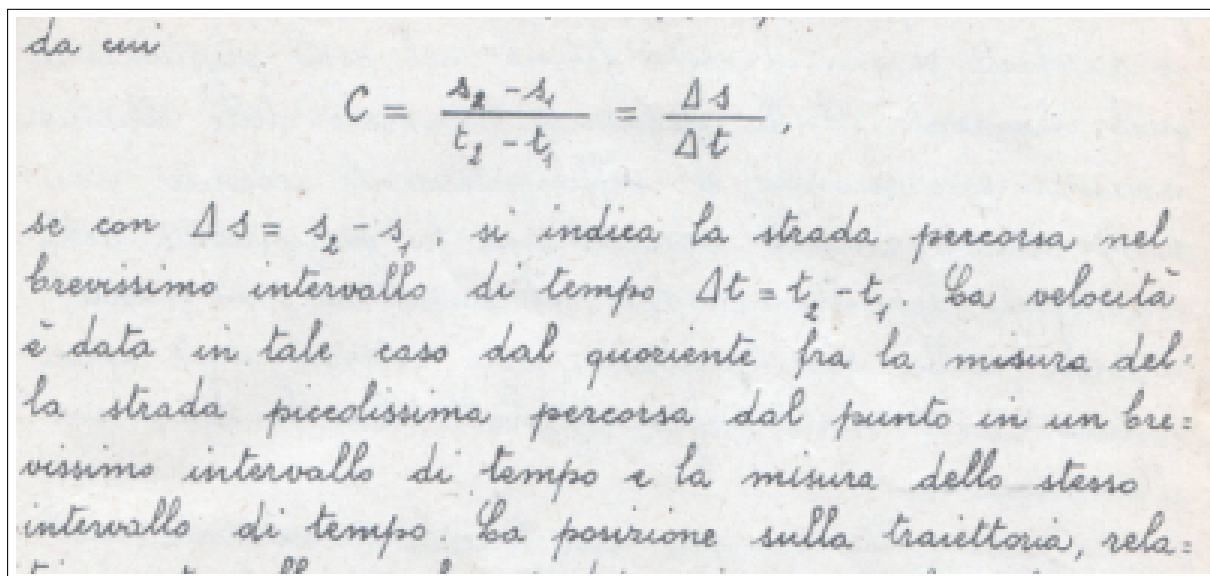 da cui
C = \frac{s_2 - s_1}{t_2 - t_1} = \frac{Δs}{Δt},
se con Δs = s_2 - s_1, si indica la strada percorsa nel
brevissimo intervallo di tempo Δt = t_2 - t_1. La velocità
è data in tale caso dal quoziente fra la misura del=
la strada piccolissima percorsa dal punto in un bre=
vissimo intervallo di tempo e la misura dello stesso
intervallo di tempo. La posizione sulla traiettoria, rela=